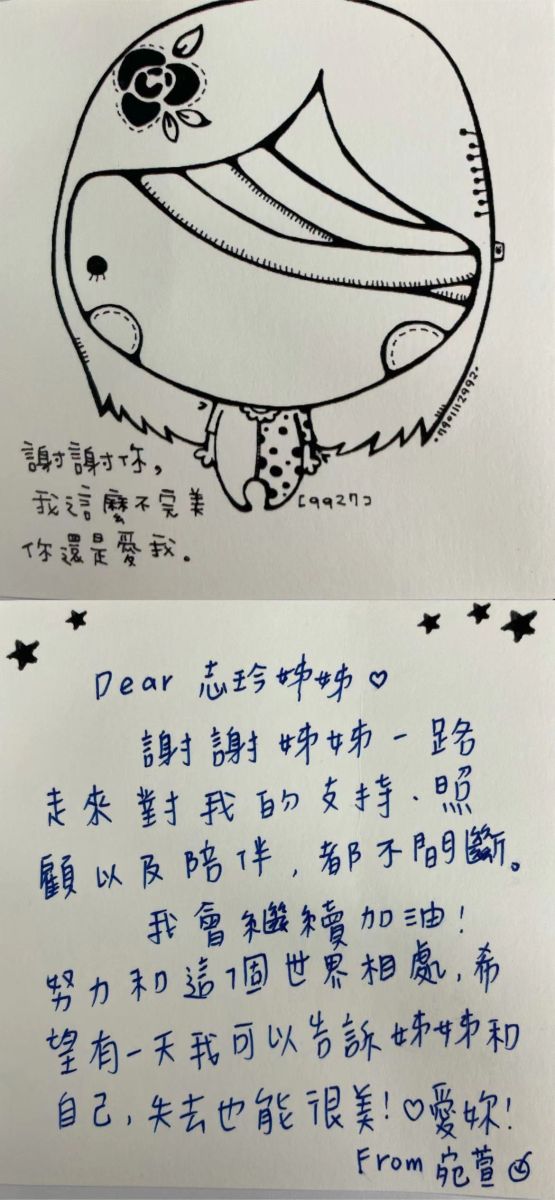 謝謝你,
我這麼不完美
你還是愛我。
[9927]
Dear 志玲姊姊♡
謝謝姊姊一路
走來對我的支持、照
顧以及陪伴,都不間斷。
我會繼續加油!
努力和這個世界相處,希
望有一天我可以告訴姊姊和
自己,失去也能很美!♡愛妳!
From 宛萱